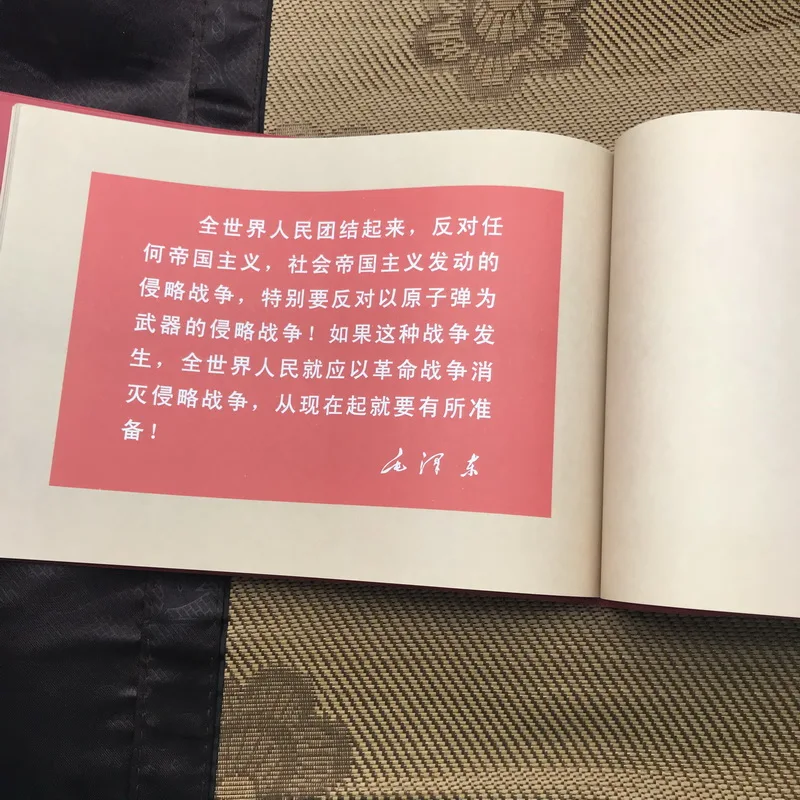 全世界人民团结起来，反对任
何帝国主义，社会帝国主义发动的
侵略战争，特别要反对以原子弹为
武器的侵略战争！如果这种战争发
生，全世界人民就应以革命战争消
灭侵略战争，从现在起就要有所准
备！
毛泽东